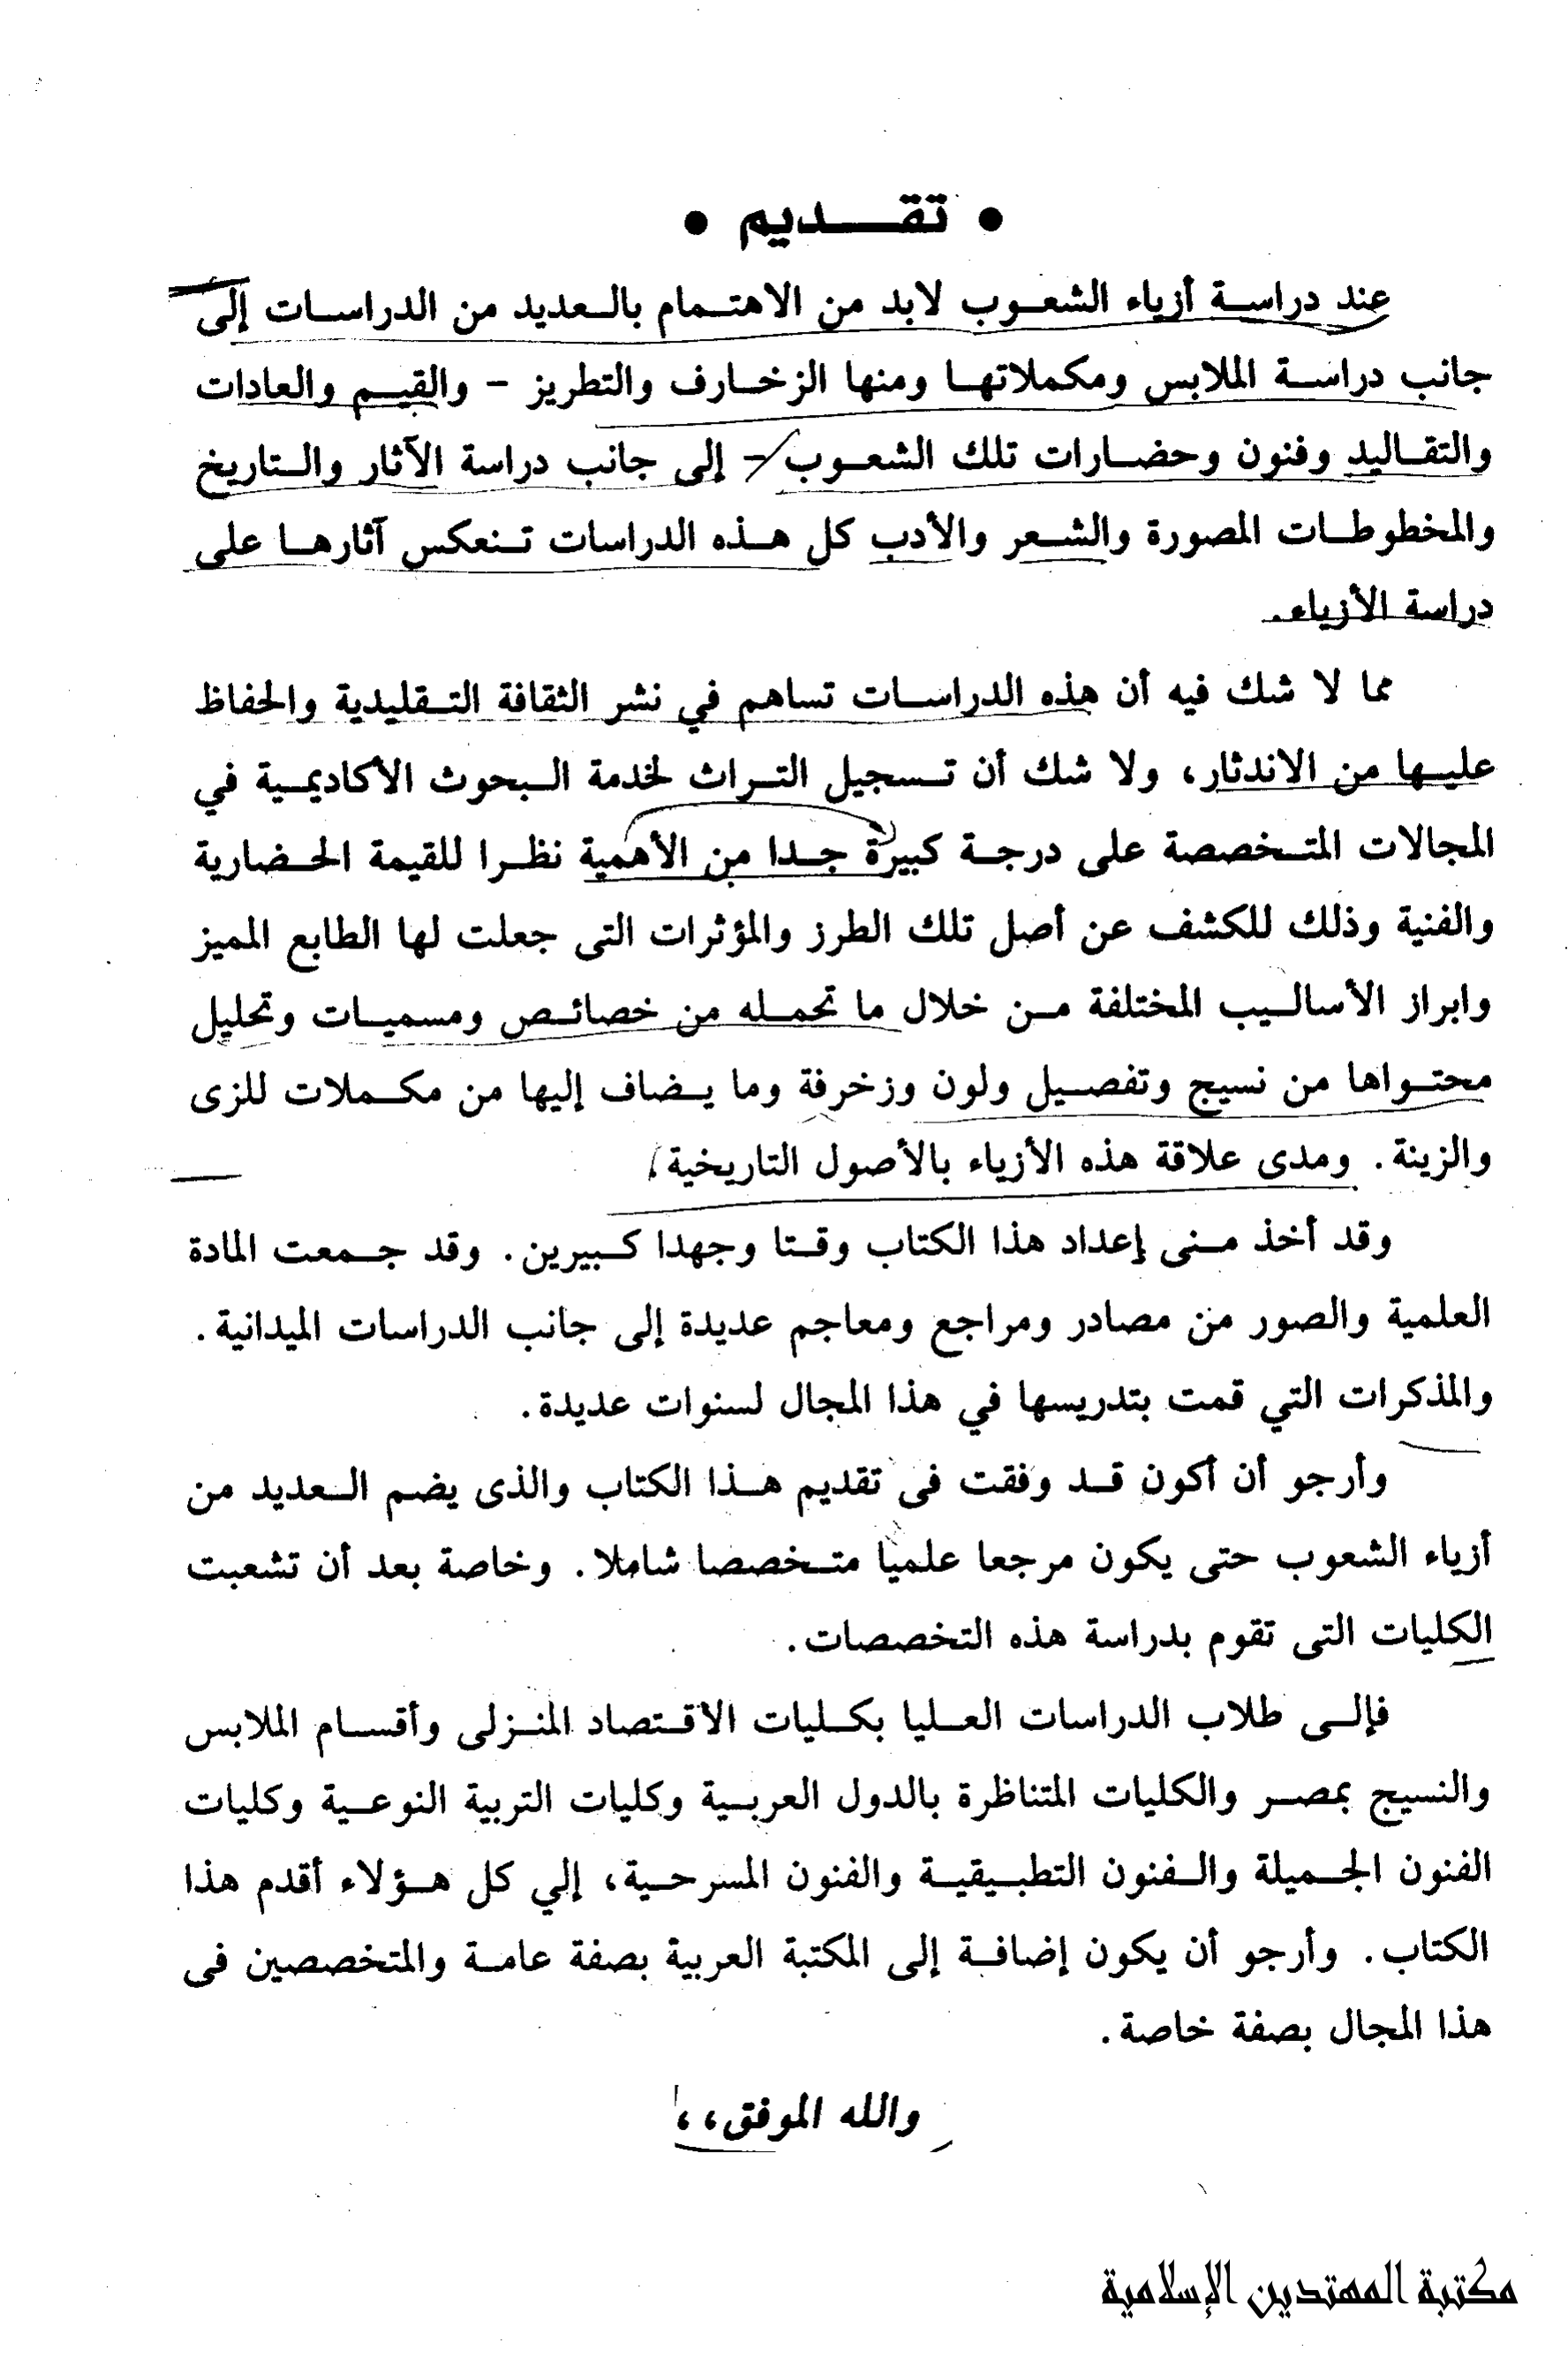 • تقديم •
عند دراسة أزياء الشعوب لابد من الاهتمام بالعديد من الدراسات إلى
جانب دراسة الملابس ومكملاتها ومنها الزخارف والتطريز - والقيم والعادات
والتقاليد وفنون وحضارات تلك الشعوب - إلى جانب دراسة الآثار والتاريخ
والمخطوطات المصورة والشعر والأدب كل هذه الدراسات تنعكس آثارها على
دراسة الأزياء.
مما لا شك فيه أن هذه الدراسات تساهم في نشر الثقافة التقليدية والحفاظ
عليها من الاندثار، ولا شك أن تسجيل التراث لخدمة البحوث الأكاديمية في
المجالات المتخصصة على درجة كبيرة جدا من الأهمية نظرا للقيمة الحضارية
والفنية وذلك للكشف عن أصل تلك الطرز والمؤثرات التى جعلت لها الطابع المميز
وابراز الأساليب المختلفة من خلال ما تحمله من خصائص ومسميات وتحليل
محتواها من نسيج وتفصيل ولون وزخرفة وما يضاف إليها من مكملات للزى
والزينة. ومدى علاقة هذه الأزياء بالأصول التاريخية،
وقد أخذ منى إعداد هذا الكتاب وقتا وجهدا كبيرين. وقد جمعت المادة
العلمية والصور من مصادر ومراجع ومعاجم عديدة إلى جانب الدراسات الميدانية.
والمذكرات التي قمت بتدريسها في هذا المجال لسنوات عديدة.
وأرجو أن أكون قد وفقت فى تقديم هذا الكتاب والذى يضم العديد من
أزياء الشعوب حتى يكون مرجعا علميا متخصصا شاملا. وخاصة بعد أن تشعبت
الكليات التى تقوم بدراسة هذه التخصصات.
فإلى طلاب الدراسات العليا بكليات الاقتصاد المنزلى وأقسام الملابس
والنسيج بمصر والكليات المتناظرة بالدول العربية وكليات التربية النوعية وكليات
الفنون الجميلة والفنون التطبيقية والفنون المسرحية، إلي كل هؤلاء أقدم هذا
الكتاب. وأرجو أن يكون إضافة إلى المكتبة العربية بصفة عامة والمتخصصين فى
هذا المجال بصفة خاصة.
والله الموفق،،
مكتبة المهتدين الإسلامية